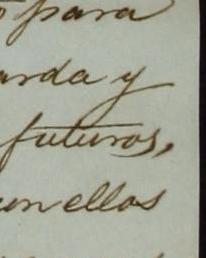 para
arda y
futuros,
un ellos